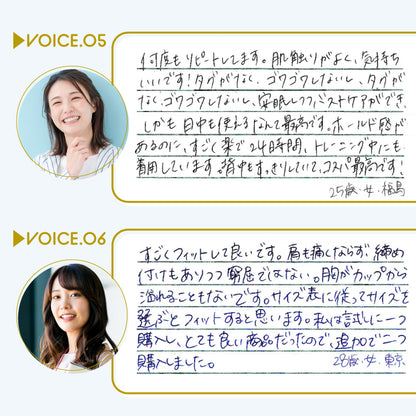 VOICE.05
何度もリピートしてます。肌触りがよく、気持ち
いいです！タグがなく、ゴワゴワしないし、タグが
なく、ゴワゴワしないし、安眠しつつバストケアができ、
しかも日中も使えるなんて最高です。ホールド感が
あるのに、すごく楽で24時間、トレーニング中にも
着用しています。背中もすっきりしていて、コスパ最高です！
25歳・女・福島
VOICE.06
すごくフィットして良いです。肩も痛くならず、締め
付けもありつつ窮屈ではない。胸がカップから
溢れることもないです。サイズ表に従ってサイズを
選ぶとフィットすると思います。私は試しに一つ
購入し、とても良い商品だったので、追加で二つ
購入しました。
28歳・女・東京